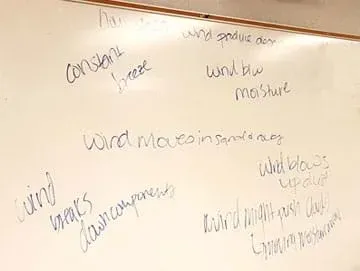 wind produce
constant
breeze
wind blw
moisture
wind moves in
wind blows
up dust
wind
breaks
down components
wind might push